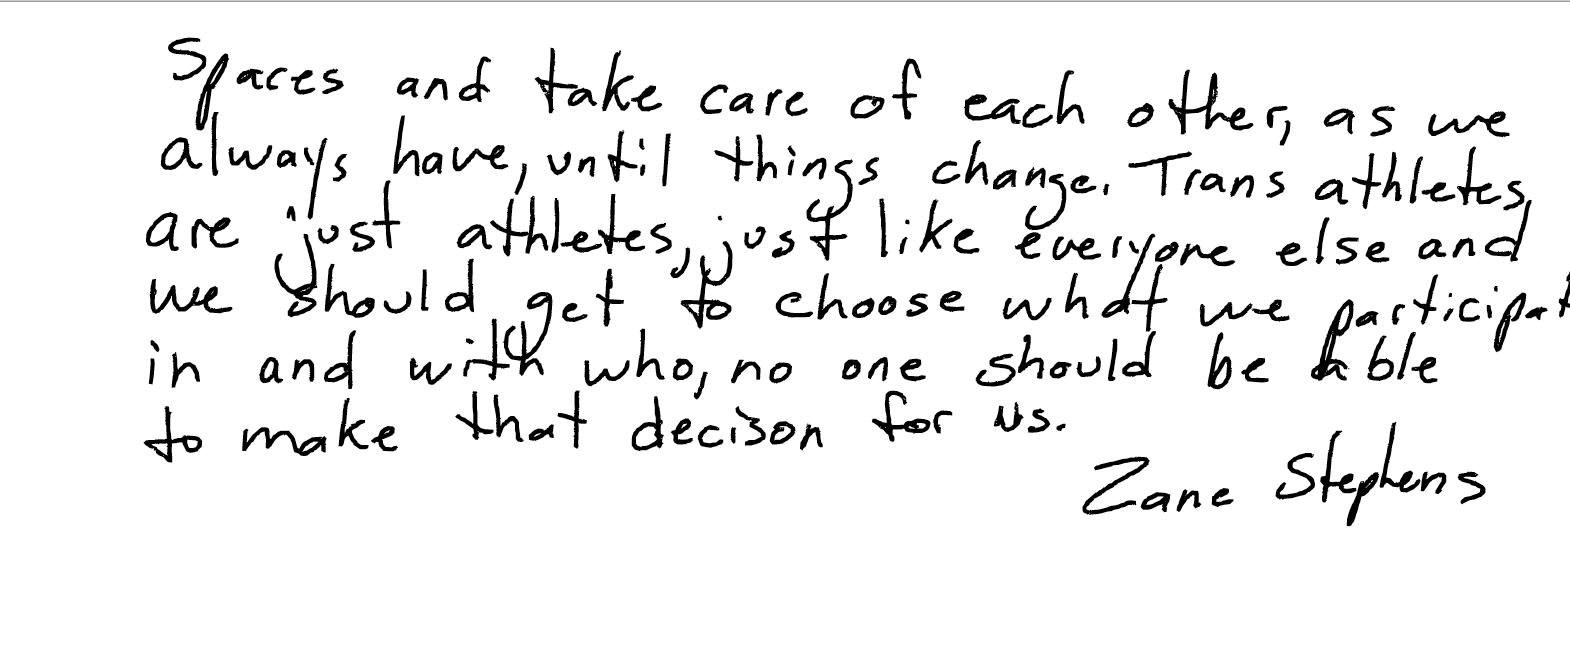 Spaces and take care of each other, as we
always have, until things change. Trans athletes,
are just athletes, just like everyone else and
we should get to choose what we participat
in and with who, no one should be able
to make that decison for us.
Zane Stephens